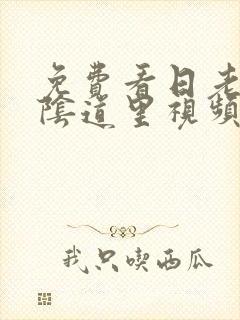 免費看日老
陰道里視頻
我只喫西瓜